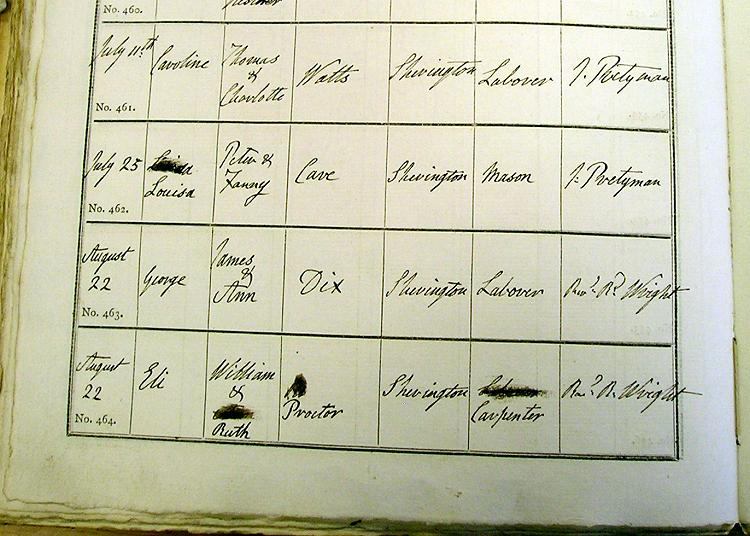 No. 460.
July 11th Caroline Thomas & Charlotte Watts Shevington Labover J. Pretyman
No. 461.
July 25 Louisa Peter & Fanny Cave Shevington Mason J. Pretyman
No. 462.
August 22 George James & Ann Dix Shevington Labover Revd. Rd. Wright
No. 463.
August 22 Eli William & Ruth Proctor Shevington Carpenter Revd. R. Wright
No. 464.